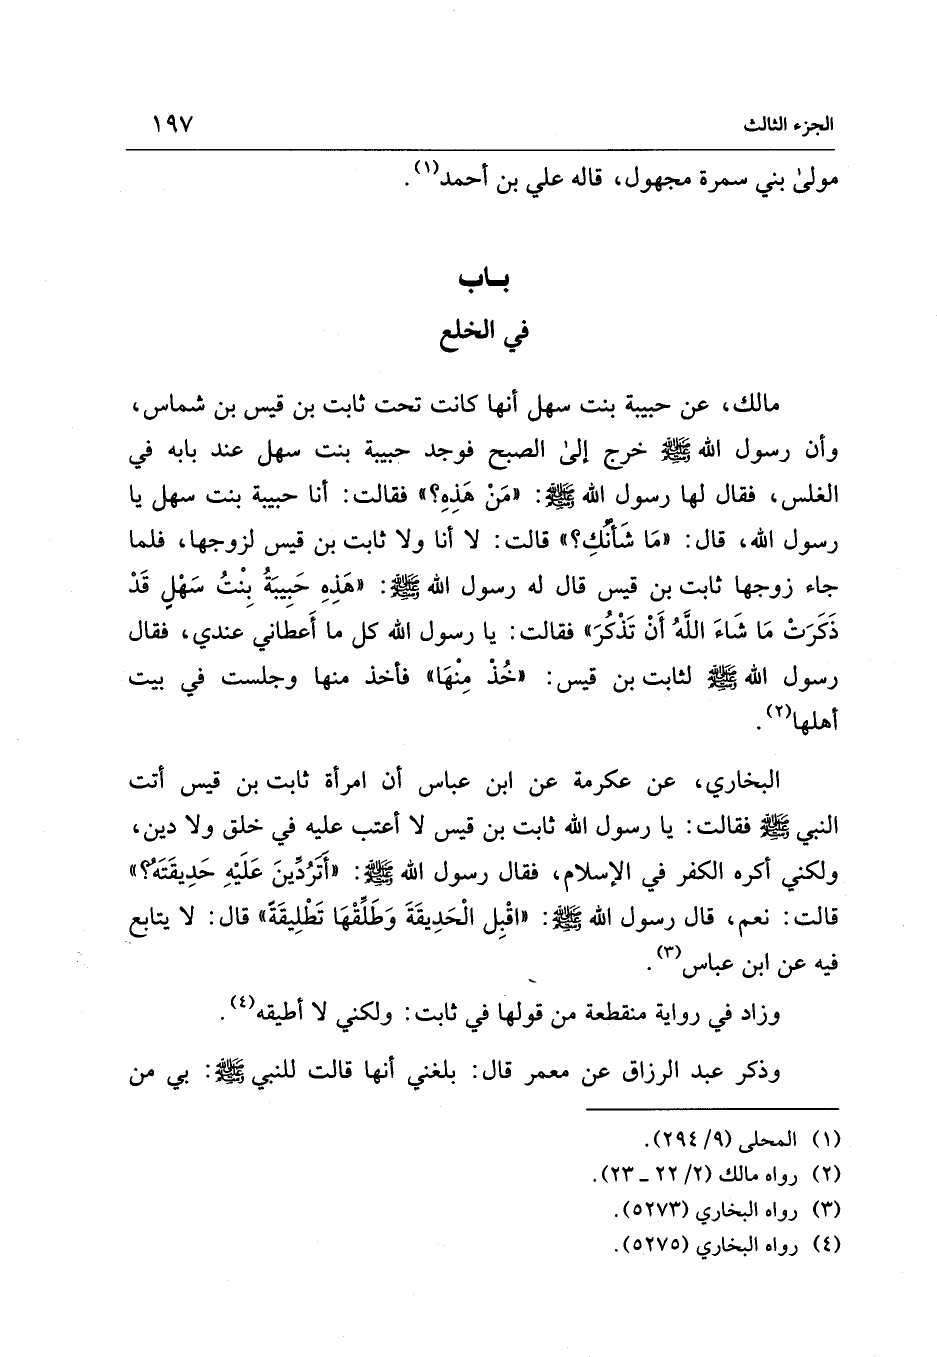 الجزء الثالث ١٩٧
مولىٰ بني سمرة مجهول، قاله علي بن أحمد(١).
بـاب
في الخلع
مالك، عن حبيبة بنت سهل أنها كانت تحت ثابت بن قيس بن شماس،
وأن رسول الله ﷺ خرج إلىٰ الصبح فوجد حبيبة بنت سهل عند بابه في
الغلس، فقال لها رسول الله ﷺ: «مَنْ هَذِهِ؟» فقالت: أنا حبيبة بنت سهل يا
رسول الله، قال: «مَا شَأنُكِ؟» قالت: لا أنا ولا ثابت بن قيس لزوجها، فلما
جاء زوجها ثابت بن قيس قال له رسول الله ﷺ: «هَذِهِ حَبِيبَةُ بِنْتُ سَهْلٍ قَدْ
ذَكَرَتْ مَا شَاءَ اللَّهُ أَنْ تَذْكُرَ» فقالت: يا رسول الله كل ما أعطاني عندي، فقال
رسول الله ﷺ لثابت بن قيس: «خُذْ مِنْهَا» فأخذ منها وجلست في بيت
أهلها(٢).
البخاري، عن عكرمة عن ابن عباس أن امرأة ثابت بن قيس أتت
النبي ﷺ فقالت: يا رسول الله ثابت بن قيس لا أعتب عليه في خلق ولا دين،
ولكني أكره الكفر في الإسلام، فقال رسول الله ﷺ: «أَتَرُدِّينَ عَلَيْهِ حَدِيقَتَهُ؟»
قالت: نعم، قال رسول الله ﷺ: «اقْبِلِ الْحَدِيقَةَ وَطَلِّقْهَا تَطْلِيقَةً» قال: لا يتابع
فيه عن ابن عباس(٣).
وزاد في رواية منقطعة من قولها في ثابت: ولكني لا أطيقه(٤).
وذكر عبد الرزاق عن معمر قال: بلغني أنها قالت للنبي ﷺ: بي من
(١) المحلى (٩/ ٢٩٤).
(٢) رواه مالك (٢/ ٢٢ ـ ٢٣).
(٣) رواه البخاري (٥٢٧٣).
(٤) رواه البخاري (٥٢٧٥).